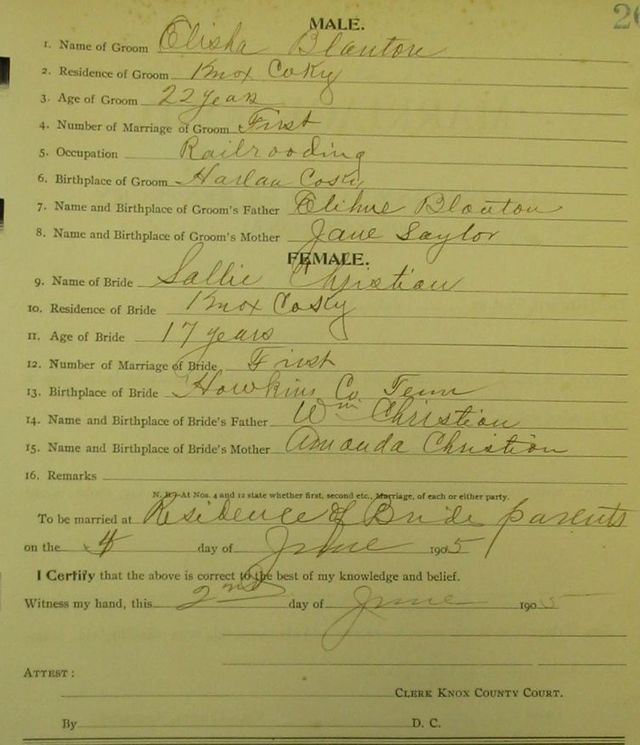 26
MALE.
1. Name of Groom Elisha Blanton
2. Residence of Groom Knox Co Ky
3. Age of Groom 22 years
4. Number of Marriage of Groom First
5. Occupation Railrooding
6. Birthplace of Groom Harlan Co Ky
7. Name and Birthplace of Groom's Father Elihue Blanton
8. Name and Birthplace of Groom's Mother Jane Saylor
FEMALE.
9. Name of Bride Sallie Christian
10. Residence of Bride Knox Co Ky
11. Age of Bride 17 years
12. Number of Marriage of Bride First
13. Birthplace of Bride Hawkins Co Tenn
14. Name and Birthplace of Bride's Father Wm Christian
15. Name and Birthplace of Bride's Mother Amanda Christian
16. Remarks
N. B.—At Nos. 4 and 12 state whether first, second etc., Marriage, of each or either party.
To be married at Residence of Bride parents
on the 4 day of June 1905
I Certify that the above is correct to the best of my knowledge and belief.
Witness my hand, this 2nd day of June 1905
ATTEST:
CLERK KNOX COUNTY COURT.
By D. C.